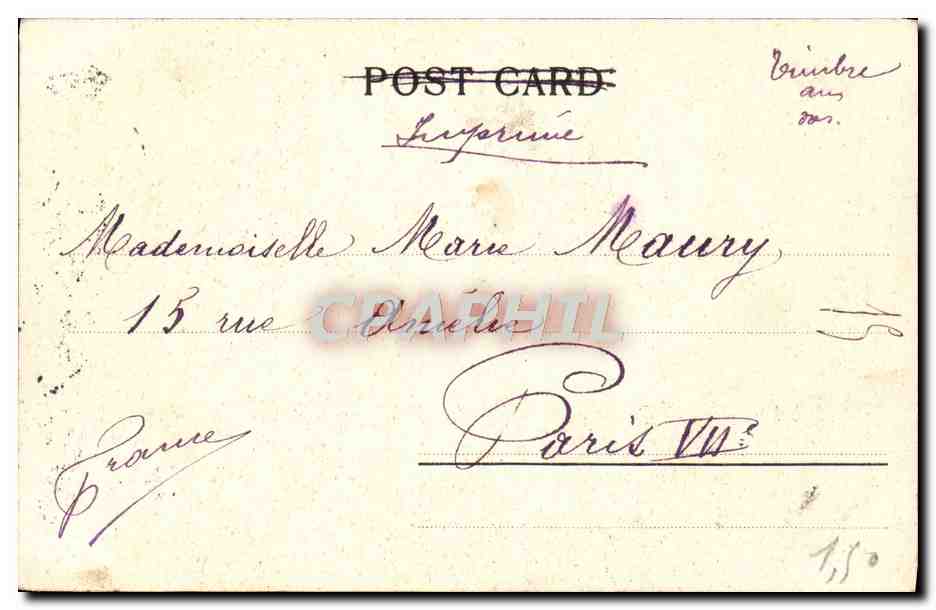 POST CARD
Timbre
au
dos.
Imprimé
Mademoiselle Marie Maury
15 rue Amélie
CPAPHIL
Paris VIIe
France
1,50